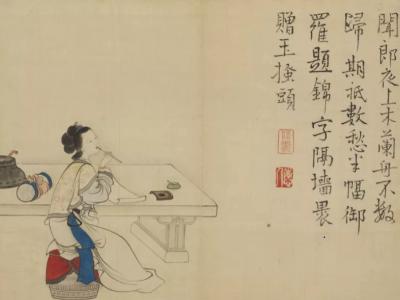 聞郎夜上木蘭舟不數
歸期祇數愁半幅御
羅題錦字隔墻裹
贈玉搔頭